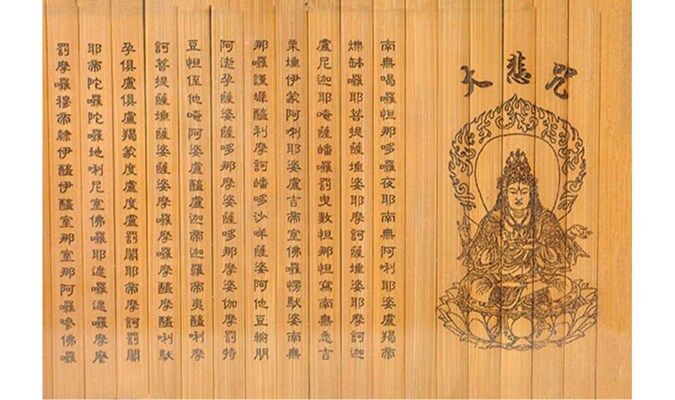 大悲咒
南無喝囉怛那哆囉夜耶南無阿唎耶婆盧羯帝
爍缽囉耶菩提薩埵婆耶摩訶薩埵婆耶摩訶迦
盧尼迦耶唵薩皤囉罰曳數怛那寫南無悉吉
栗埵伊蒙阿唎耶婆盧吉帝室佛囉愣馱婆南無
那囉謹墀醯利摩訶皤哆沙咩薩婆阿他豆輸朋
阿逝孕薩婆薩哆那摩婆薩哆那摩婆伽摩罰特
豆怛侄他唵阿婆盧醯盧迦帝迦羅帝夷醯唎摩
訶菩提薩埵薩婆薩婆摩囉摩囉摩醯摩醯唎馱
孕俱盧俱盧羯蒙度盧度盧罰闍耶帝摩訶罰闍
耶帝陀囉陀囉地唎尼室佛囉耶遮囉遮囉摩麼
罰摩囉穆帝隸伊醯伊醯室那室那阿囉嘇佛囉